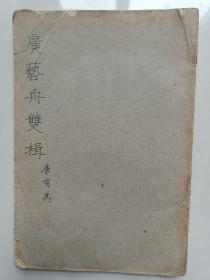 廣藝舟雙楫
康有為